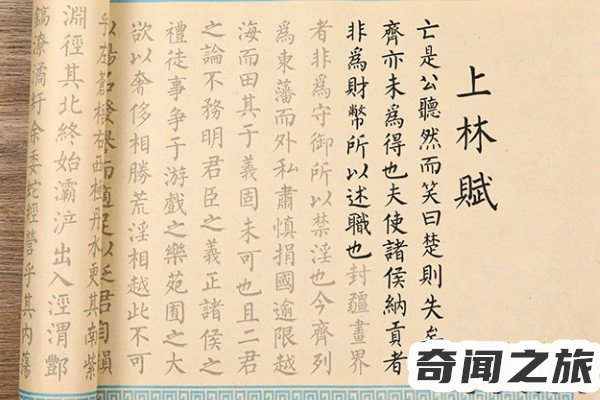 上林賦
亡是公聽然而笑曰楚則失
齊亦未爲得也夫使諸侯納貢者
非爲財幣所以述職也封疆畫界
者非爲守御所以禁淫也今齊列
爲東藩而外私肅慎捐國逾限越
海而田其于義固未可也且二君
之論不務明君臣之義正諸侯之
禮徒事爭于游戲之樂苑囿之大
欲以奢侈相勝荒淫相越此不可
以揚名發而適足以君自
右西極丹水更其南紫
淵徑其北終始灞滻出入涇渭酆
鎬潦潏紆余委蛇經營乎其內蕩
奇闻之旅